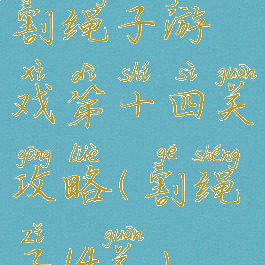 割绳子游
xì dì shí sì guān
戏第十四关
gōng lüè gē shéng
攻略(割绳
zǐ guān
子14关)